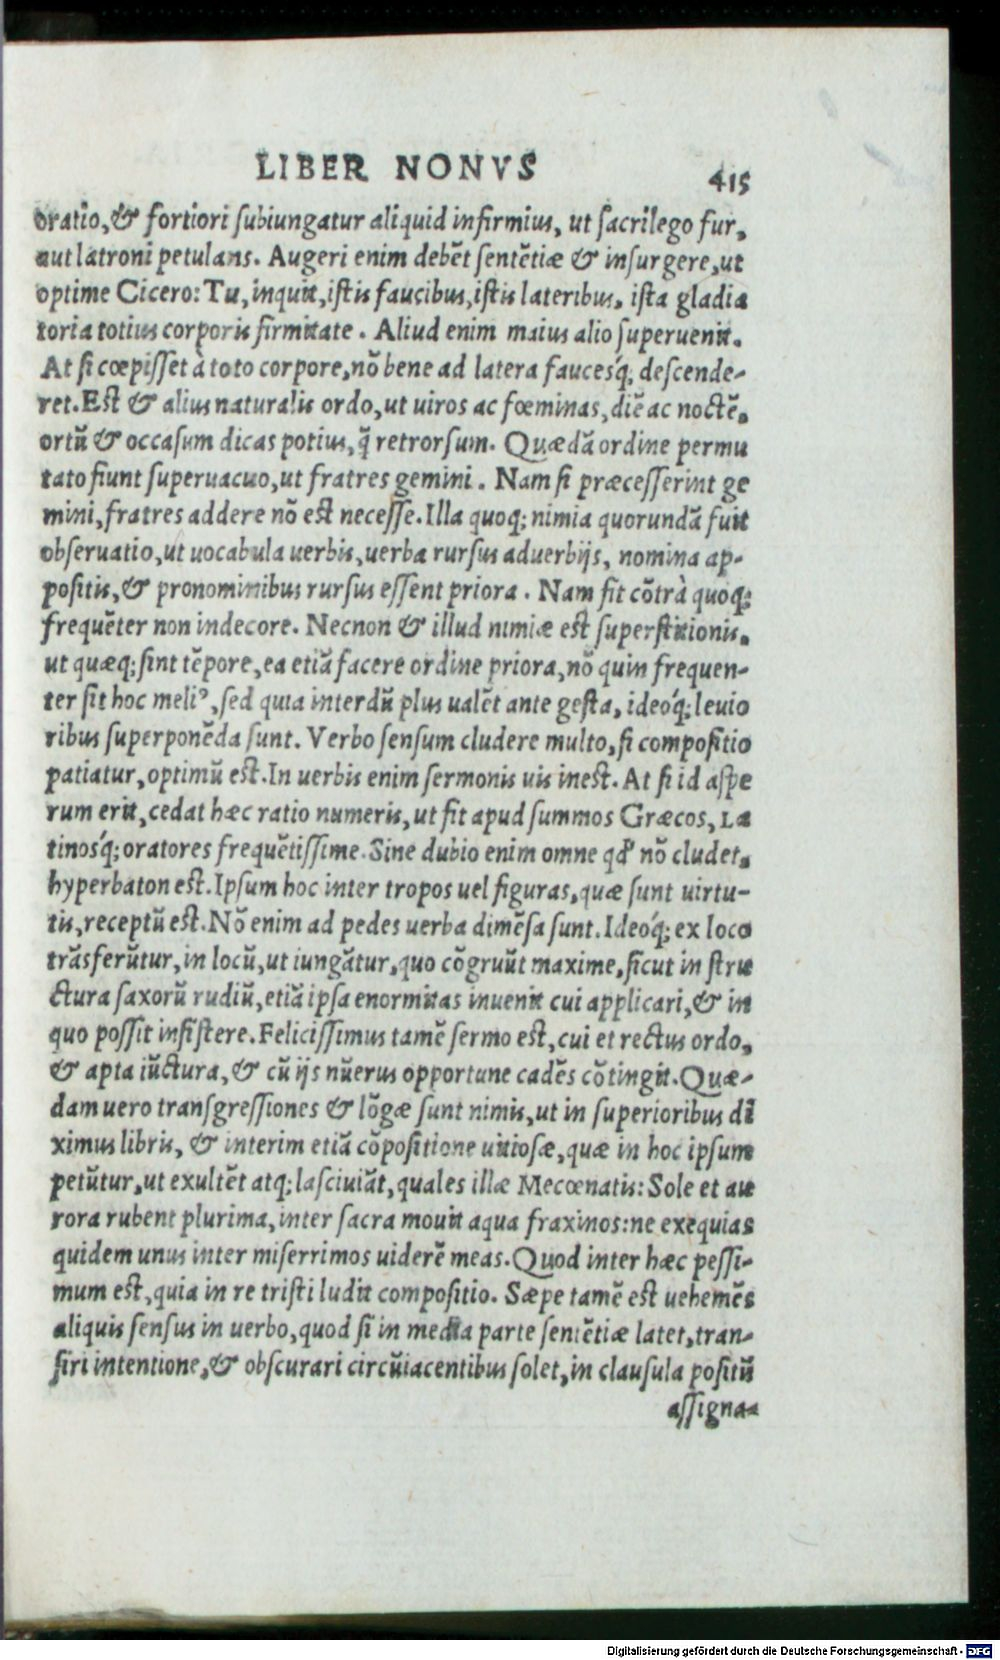 LIBER NONVS 415
oratio,& fortiori ſubiungatur aliquid infirmius, ut ſacrilego fur,
aut latroni petulans. Augeri enim debēt ſentētiæ & inſurgere,ut
optime Cicero: Tu,inquit,iſtis faucibus,iſtis lateribus, iſta gladia
toria totius corporis firmitate. Aliud enim maius alio ſuperuenit.
At ſi cœpiſſet à toto corpore,nō bene ad latera faucesq́; deſcende-
ret.Eſt & alius naturalis ordo,ut uiros ac fœminas,diē ac noctē,
ortū & occaſum dicas potius,q̃ retrorſum. Quædā ordine permu
tato fiunt ſuperuacuo,ut fratres gemini. Nam ſi præceſſerint ge
mini,fratres addere nō eſt neceſſe.Illa quoq; nimia quorundā fuit
obſeruatio,ut uocabula uerbis,uerba rurſus aduerbijs, nomina ap-
poſitis,& pronominibus rurſus eſſent priora. Nam fit cōtrà quoq;
frequēter non indecore. Necnon & illud nimiæ eſt ſuperſtitionis,
ut quæq; ſint tēpore,ea etiā facere ordine priora,nō quin frequen-
ter ſit hoc meliꝰ,ſed quia interdū plus ualēt ante geſta, ideoq́; leuio
ribus ſuperponēda ſunt. Verbo ſenſum cludere multo,ſi compoſitio
patiatur,optimū eſt.In uerbis enim ſermonis uis ineſt. At ſi id aſpe
rum erit,cedat hæc ratio numeris,ut fit apud ſummos Græcos, La
tinosq́; oratores frequētiſſime.Sine dubio enim omne qđ nō cludet,
hyperbaton eſt.Ipſum hoc inter tropos uel figuras,quæ ſunt uirtu-
tis,receptū eſt.Nō enim ad pedes uerba dimēſa ſunt.Ideoq́; ex loco
trāsferūtur,in locū,ut iungātur,quo cōgruūt maxime,ſicut in ſtru
ctura ſaxorū rudiū,etiā ipſa enormitas inuenit cui applicari,& in
quo poſſit inſiſtere.Feliciſſimus tamē ſermo eſt,cui et rectus ordo,
& apta iūctura,& cū ijs nūerus opportune cadēs cōtingit.Quæ-
dam uero tranſgreſſiones & lōgæ ſunt nimis,ut in ſuperioribus di
ximus libris, & interim etiā cōpoſitione uitioſæ,quæ in hoc ipſum
petūtur,ut exultēt atq; laſciuiāt,quales illæ Mecœnatis: Sole et au
rora rubent plurima,inter ſacra mouit aqua fraxinos:ne exequias
quidem unus inter miſerrimos uiderē meas.Quod inter hæc peſſi-
mum eſt,quia in re triſti ludit compoſitio. Sæpe tamē eſt uehemēs
aliquis ſenſus in uerbo,quod ſi in media parte ſentētiæ latet,tran-
ſiri intentione,& obſcurari circūiacentibus ſolet,in clauſula poſitū
aſſigna-
Digitalisierung gefördert durch die Deutsche Forschungsgemeinschaft - DFG